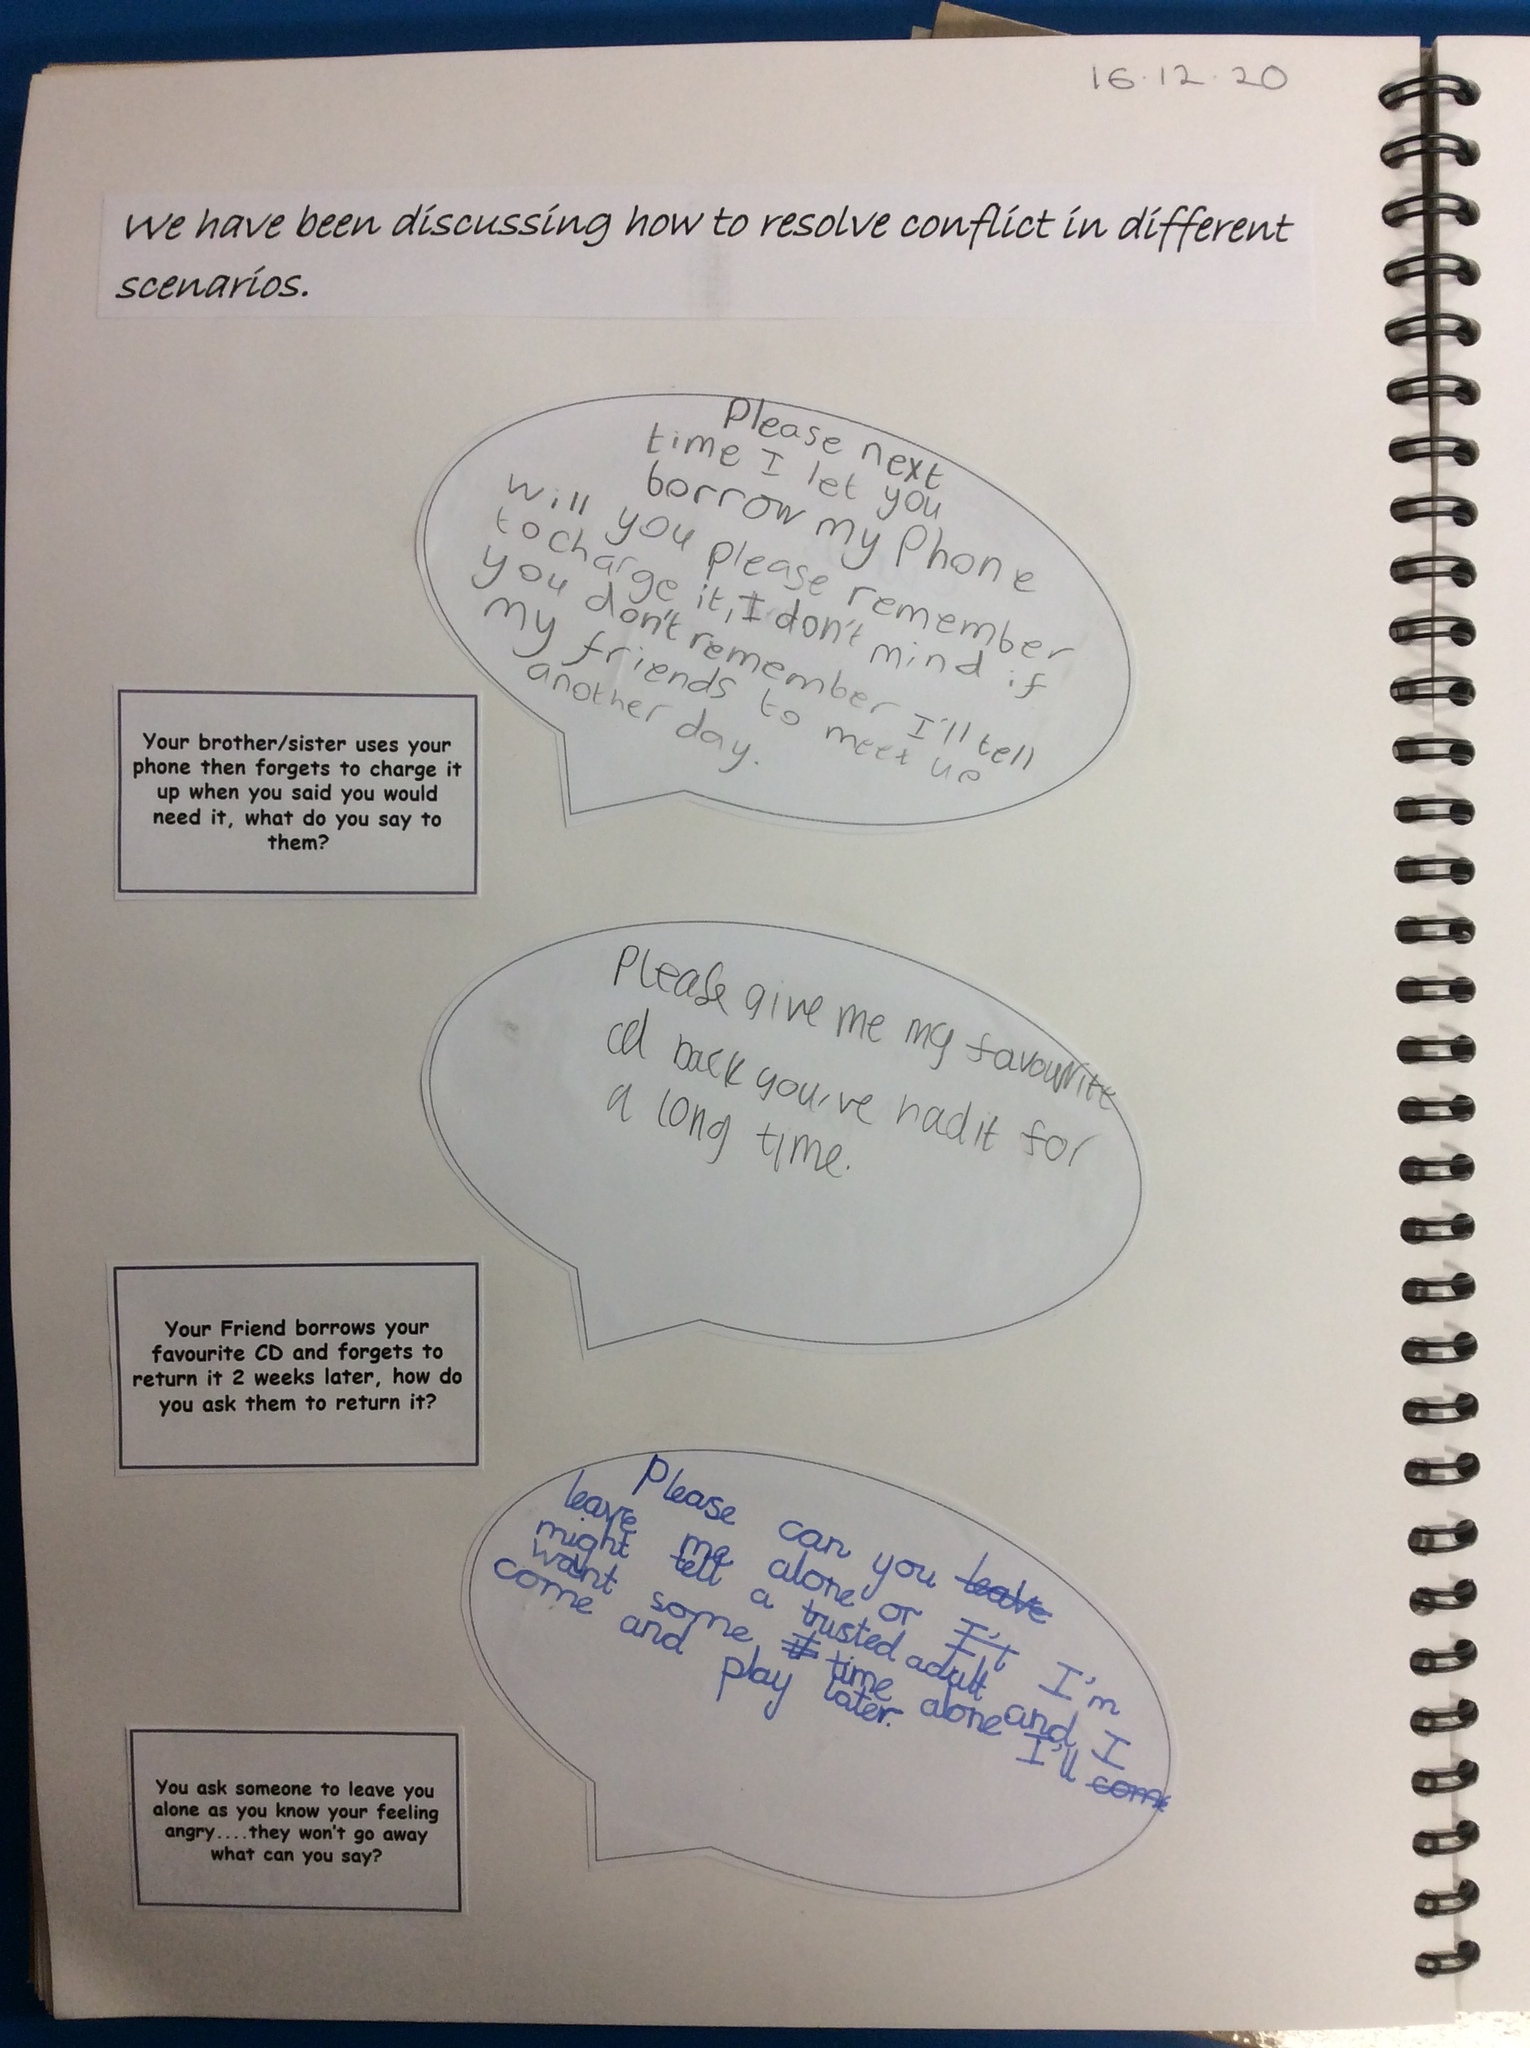 16.12.20
We have been discussing how to resolve conflict in different
scenarios.
Please next
time I let you
borrow my Phone
will you please remember
to charge it, I don't mind if
you don't remember I'll tell
my friends to meet up
another day.
Your brother/sister uses your
phone then forgets to charge it
up when you said you would
need it, what do you say to
them?
Please give me my favourite
cd back you've had it for
a long time.
Your Friend borrows your
favourite CD and forgets to
return it 2 weeks later, how do
you ask them to return it?
Please can you leave
leave me alone or I't I'm
might tell a trusted adult and I
want some time alone I'll come
come and play later.
You ask someone to leave you
alone as you know your feeling
angry....they won't go away
what can you say?